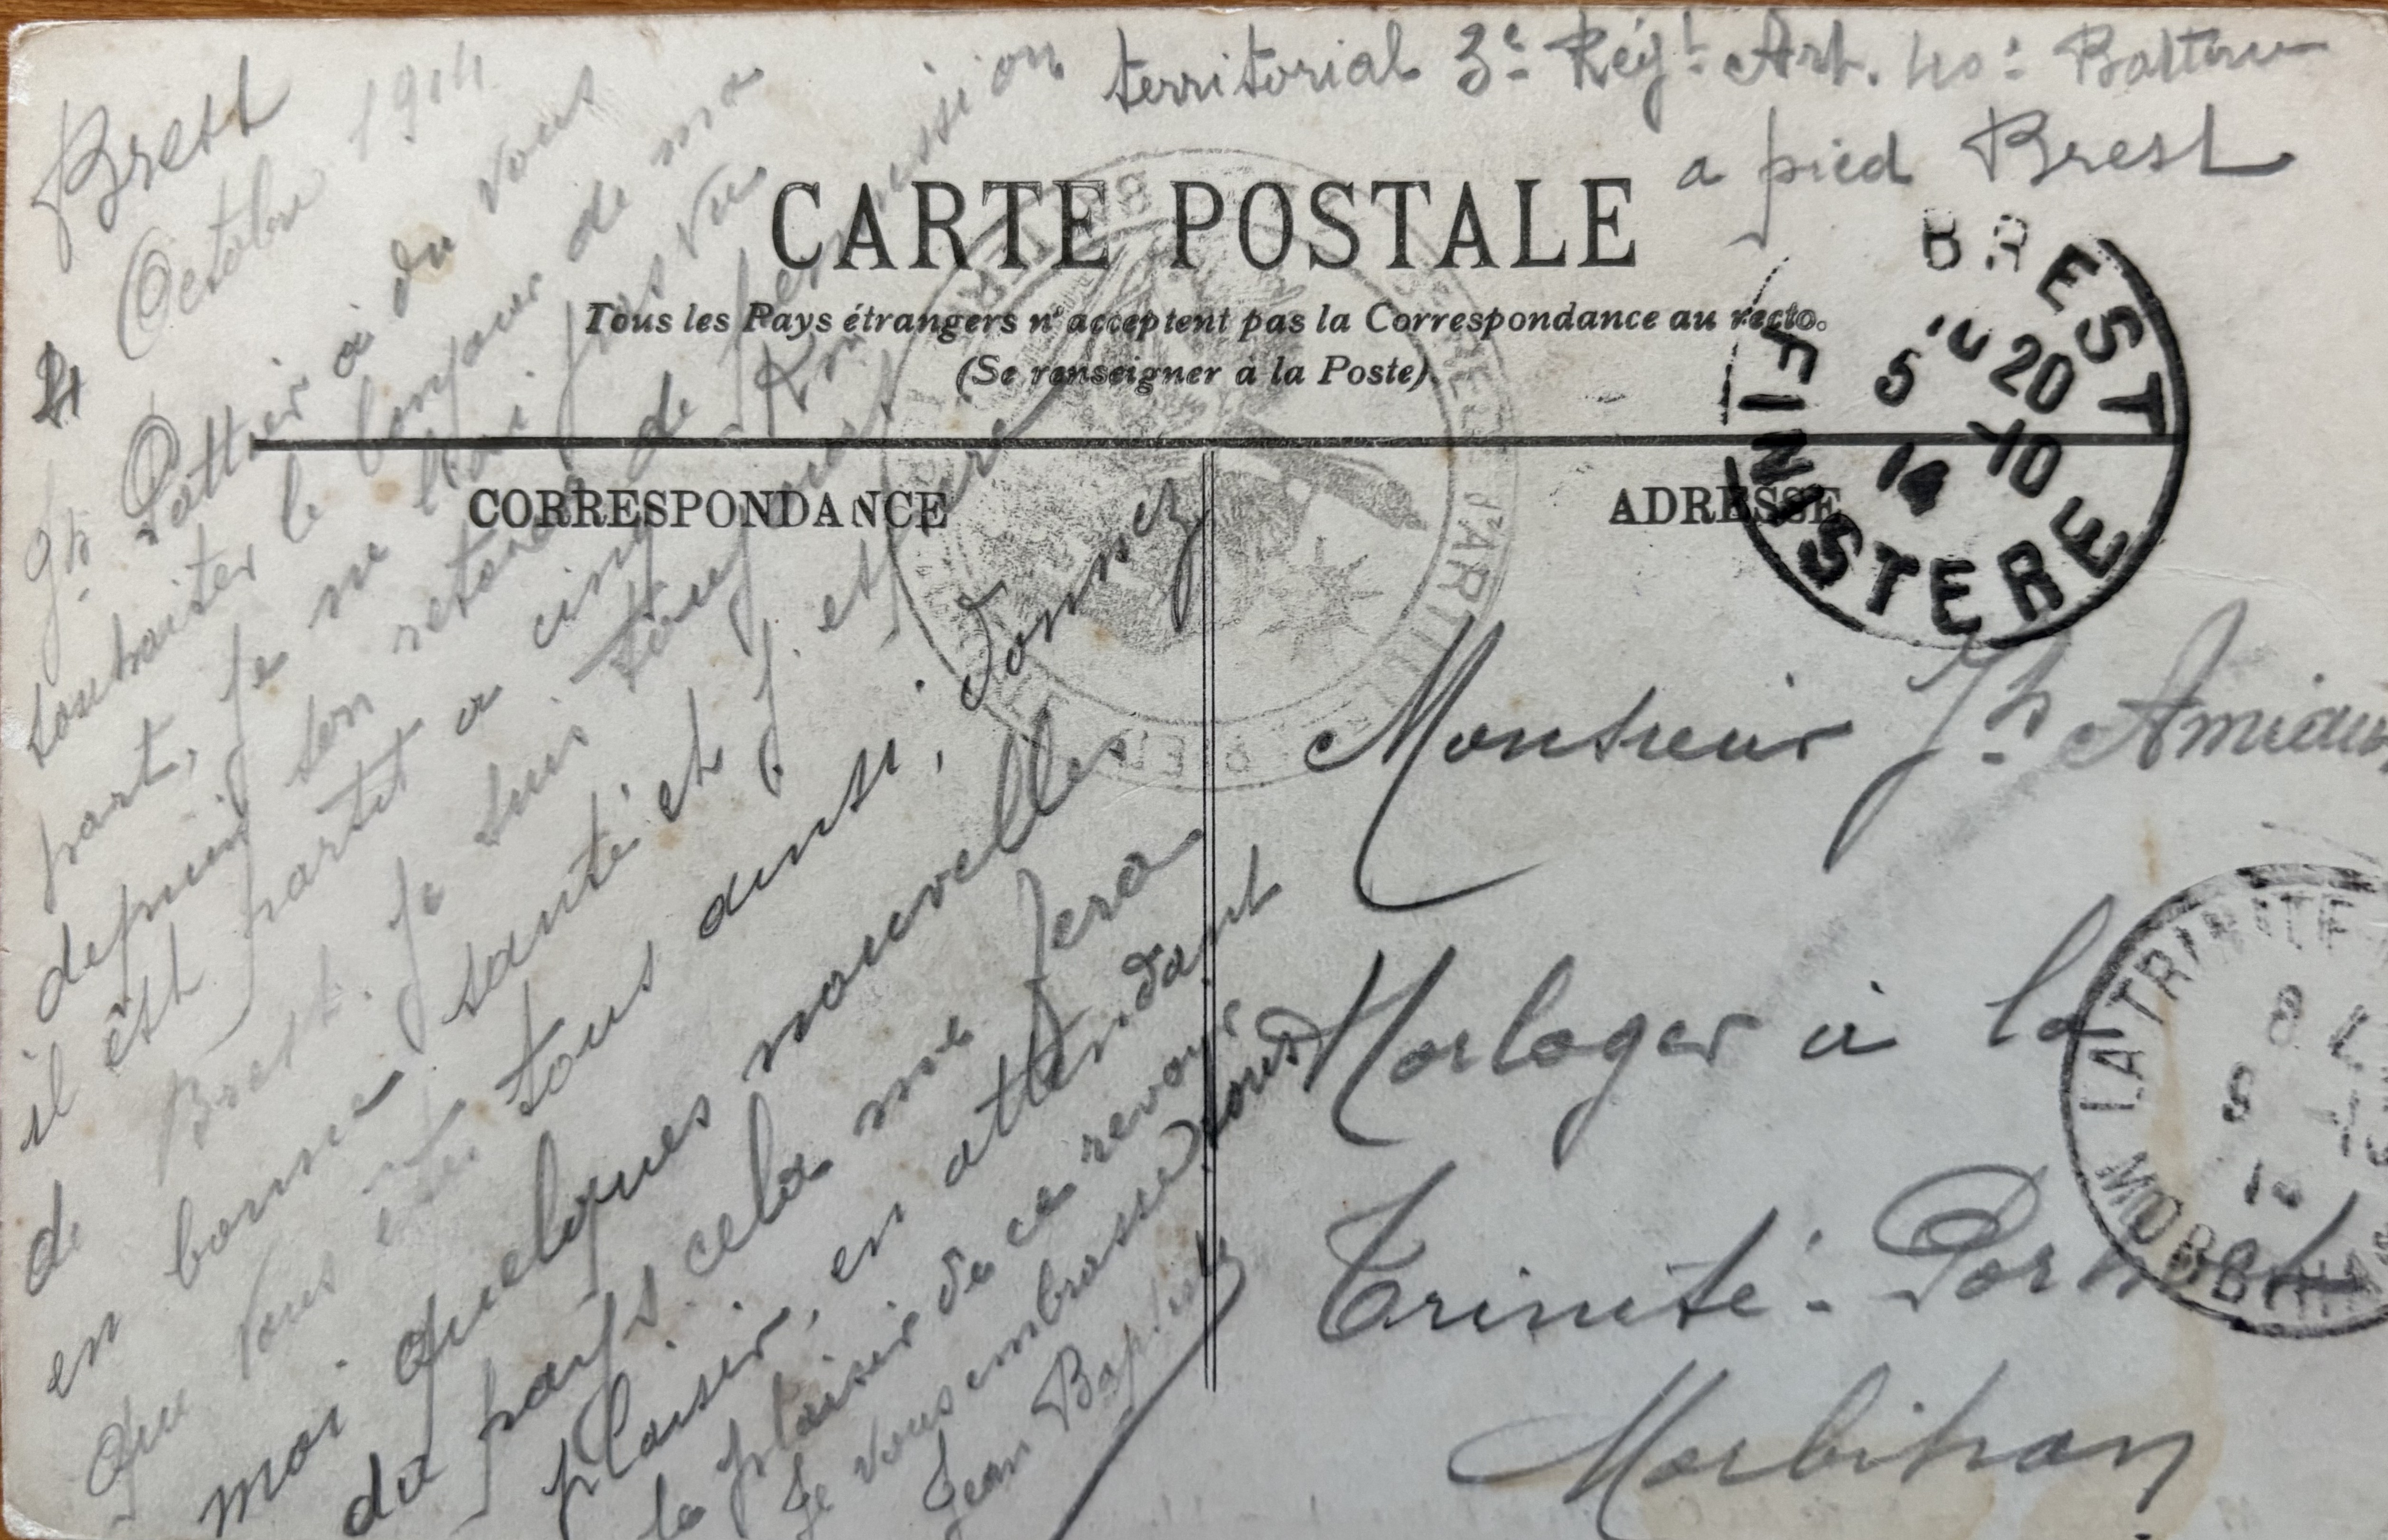 territorial 3e Régt Art. 40e Batterie
a pied Brest
CARTE POSTALE
Tous les Pays étrangers n'acceptent pas la Correspondance au recto.
(Se renseigner à la Poste)
CORRESPONDANCE
ADRESSE
Brest
4 Octobre 1914
Jh Pottier a du vous
souhaiter le bonjour de ma
part, je ne l'ai pas vu
depuis son retour de permission
il est partit a cinq Km
de Brest. je suis toujours
en bonne santé et j. espere
que vous etes tous ainsi, donnez
moi quelques nouvelles
du pays cela me fera
plaisir, en attendant
le plaisir de ce revoir
je vous embrasse tous
Jean Baptiste
BREST
20
5 -10
14
FINISTERE
D'ARTILLERIE
Monsieur Jh
Horloger à la
Trinité-Porhoet
Morbihan
LA TRINITE
8
5 -10
14
MORBIHAN